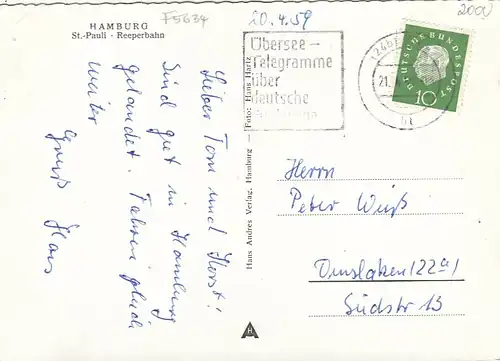 HAMBURG
St.-Pauli - Reeperbahn
F5634
20.4.59
2000
Übersee-
Telegramme
über
deutsche
21.
DEUTSCHE BUNDESPOST
10
Lieber Tom und Horst!
Sind gut in Hamburg
gelandet. Fahren gleich
weiter
Gruß Hans
Hans Andres Verlag, Hamburg - Foto: Hans Hartz
Herrn
Peter Weiß
Dinslaken (22a)
Südstr 13
A